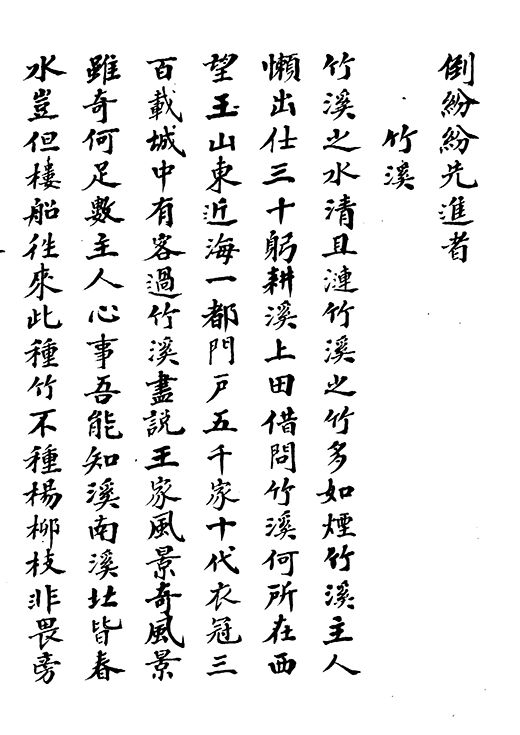 倒紛紛先進者
竹溪
竹溪之水清且漣竹溪之竹多如煙竹溪主人
懶出仕三十躬耕溪上田借問竹溪何所在西
望玉山東近海一都門戸五千家十代衣冠三
百載城中有客過竹溪盡説王家風景奇風景
雖奇何足數主人心事吾能知溪南溪北皆春
水豈但樓船往來此種竹不種楊柳枝非畏旁